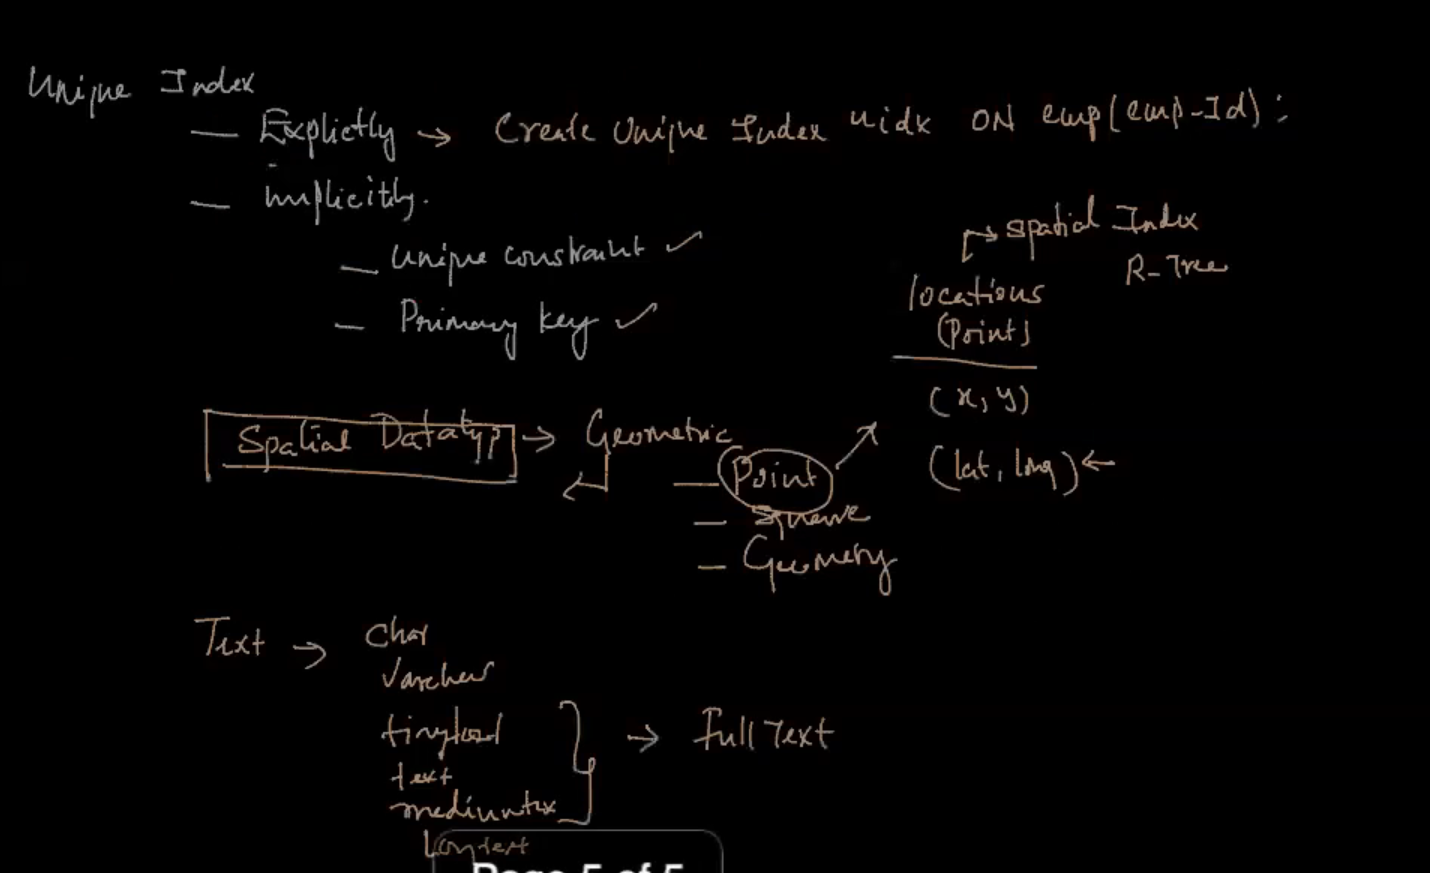 Unique Index
— Explictly → Create Unique Index uidx ON emp(emp-Id);
— implicitly.
— unique constraint ✓
— Primary key ✓
→ spatial Index
R-Tree
locations
(Point)
(x, y)
(lat, long) ←
Spatial Datatyp → Geometric
— Point
— Square
— Geometry
Text → Char
Varchar
tinytext
text
mediumtex
Longtext
→ Full Text
Page 5 of 5